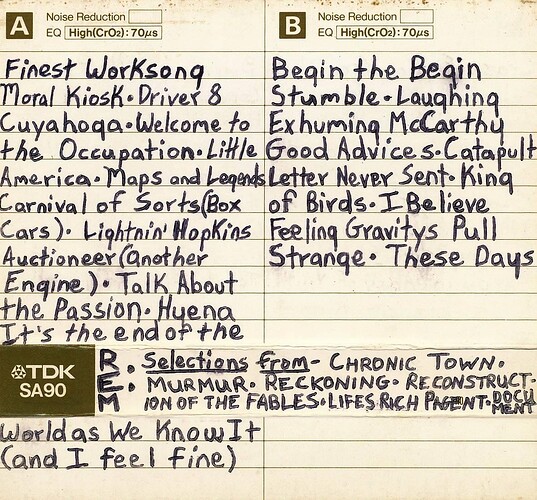 A Noise Reduction
EQ High(CrO2): 70μs
Finest Worksong
Moral Kiosk · Driver 8
Cuyahoga · Welcome to
the Occupation · Little
America · Maps and Legends
Carnival of Sorts (Box
Cars) · Lightnin' Hopkins
Auctioneer (another
Engine) · Talk About
the Passion · Hyena
It's the end of the
B Noise Reduction
EQ High(CrO2): 70μs
Begin the Begin
Stumble · Laughing
Exhuming McCarthy
Good Advices · Catapult
Letter Never Sent · King
of Birds · I Believe
Feeling Gravitys Pull
Strange · These Days
TDK
SA90
R. Selections from - CHRONIC TOWN ·
E. MURMUR · RECKONING · RECONSTRUCT-
M ION OF THE FABLES · LIFES RICH PAGENT · DOCU
MENT
World as We Know It
(and I feel fine)